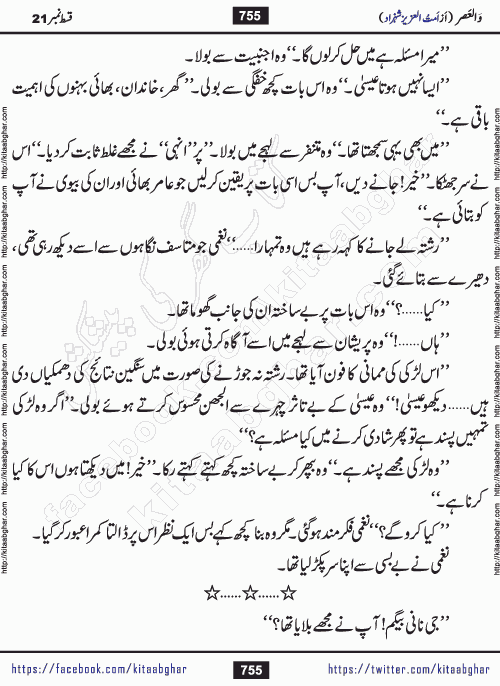 والعصر (از اَمت العزیز شہزاد) 755 قسط نمبر 21
’’میرا مسئلہ ہے میں حل کر لوں گا۔‘‘ وہ اجنبیت سے بولا۔
’’ایسا نہیں ہوتا عیسیٰ۔‘‘ وہ اس بات کچھ خفگی سے بولی۔ ’’گھر، خاندان، بھائی بہنوں کی اہمیت
باقی ہے۔‘‘
’’میں بھی یہی سمجھتا تھا۔‘‘ وہ متنفر سے لہجے میں بولا۔ ’’پر ’’انہی‘‘ نے مجھے غلط ثابت کر دیا۔‘‘ اس
نے سر جھٹکا۔ ’’خیر! جانے دیں، آپ بس اسی بات پر یقین کر لیں جو عامر بھائی اور ان کی بیوی نے آپ
کو بتائی ہے۔‘‘
’’رشتہ لے جانے کا کہہ رہے ہیں وہ تمہارا……‘‘ نغمی جو متاسف نگاہوں سے اسے دیکھ رہی تھی،
دھیرے سے بتائے گئی۔
’’کیا……؟‘‘ وہ اس بات پر بے ساختہ ان کی جانب گھوما تھا۔
’’ہاں……!‘‘ وہ پریشان سے لہجے میں اسے آگاہ کرتی ہوئی بولی۔
’’اس لڑکی کی ممانی کا فون آیا تھا۔ رشتہ نہ جوڑنے کی صورت میں سنگین نتائج کی دھمکیاں دی
ہیں…… دیکھو عیسیٰ!‘‘ وہ عیسیٰ کے بے تاثر چہرے سے الجھن محسوس کرتے ہوئے بولی۔ ’’اگر وہ لڑکی
تمہیں پسند ہے تو پھر شادی کرنے میں کیا مسئلہ ہے؟‘‘
’’وہ لڑکی مجھے پسند ہے۔‘‘ وہ بپھر کر بے ساختہ کچھ کہتے کہتے رکا۔ ’’خیر! میں دیکھتا ہوں اس کا کیا
کرنا ہے۔‘‘
’’کیا کرو گے؟‘‘ نغمی فکر مند ہو گئی۔ مگر وہ بنا کچھ کہے بس ایک نظر اس پر ڈالتا کمرا عبور کر گیا۔
نغمی نے بے بسی سے اپنا سر پکڑ لیا تھا۔
☆……☆……☆
’’جی نانی بیگم! آپ نے مجھے بلایا تھا؟‘‘
https://facebook.com/kitaabghar 755 https://twitter.com/kitaabghar
http://kitaabghar.com
facebook.com/kitaabghar
kitaabghar.com
کتاب گھر کی پیشکش